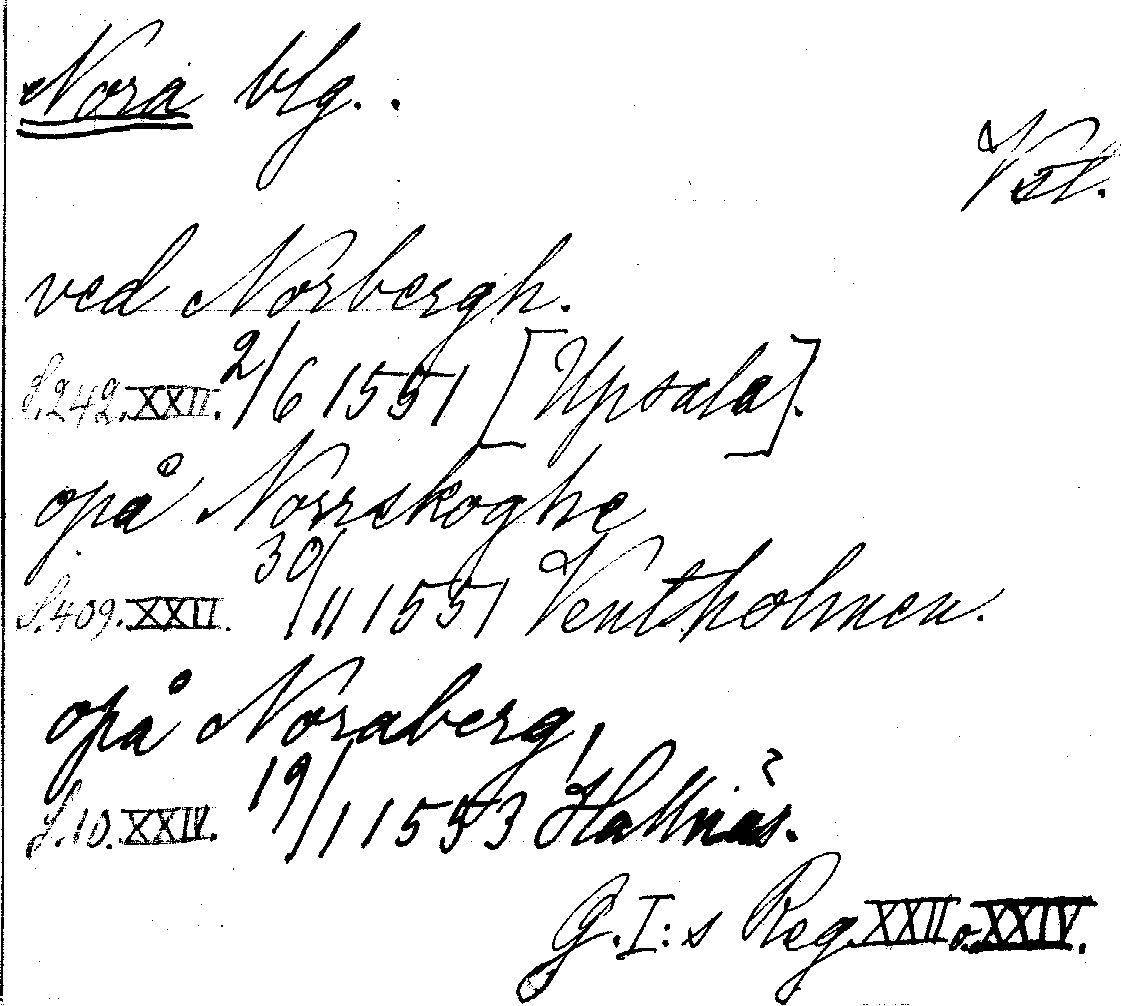 Nora blg.
Vstl.
ved Norbergh.
S.242.XXII. 2/6 1551 [Upsala].
opå Norrskoghe
S.409.XXII. 30/11 1551 Ventholmen.
opå Noraberg,
S.10.XXIV. 19/1 1553 Hallnäs.
G.I:s Reg. XXII o. XXIV.